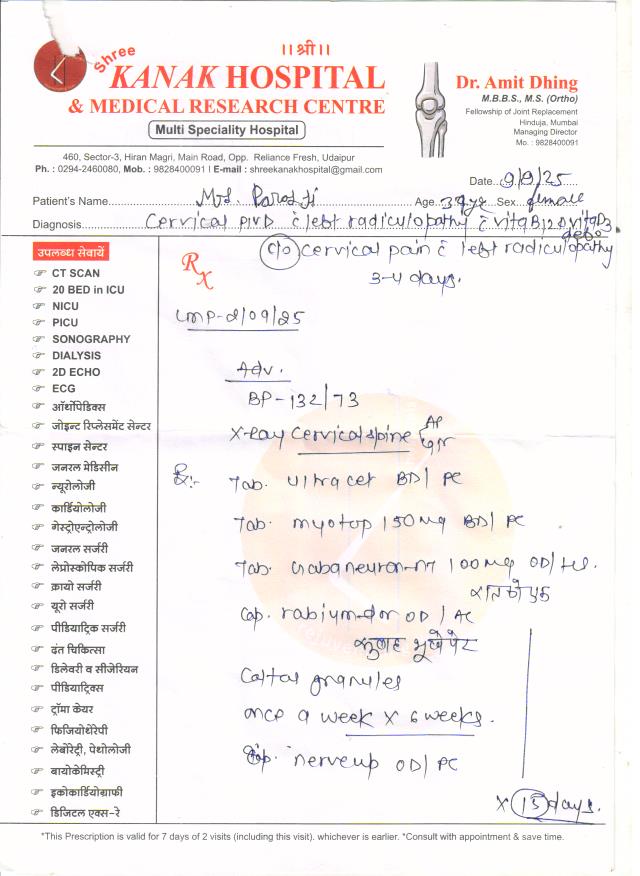 ।। श्री ।।
Shree
KANAK HOSPITAL
& MEDICAL RESEARCH CENTRE
Multi Speciality Hospital
460, Sector-3, Hiran Magri, Main Road, Opp. Reliance Fresh, Udaipur
Ph. : 0294-2460080, Mob. : 9828400091 I E-mail : shreekanakhospital@gmail.com
Dr. Amit Dhing
M.B.B.S., M.S. (Ortho)
Fellowship of Joint Replacement
Hinduja, Mumbai
Managing Director
Mo. : 9828400091
Date 9/9/25
Patient's Name Mrs. Paras Ji Age. 39yr Sex. female
Diagnosis Cervical PIVD c left radiculopathy c vitB12 D vitD3
defo
उपलब्ध सेवायें
CT SCAN
20 BED in ICU
NICU
PICU
SONOGRAPHY
DIALYSIS
2D ECHO
ECG
ऑर्थोपेडिक्स
जोइन्ट रिप्लेसमेंट सेन्टर
स्पाइन सेन्टर
जनरल मेडिसीन
न्यूरोलोजी
कार्डियोलोजी
गेस्ट्रोएन्ट्रोलोजी
जनरल सर्जरी
लेप्रोस्कोपिक सर्जरी
क्रायो सर्जरी
यूरो सर्जरी
पीडियाट्रिक सर्जरी
दंत चिकित्सा
डिलेवरी व सीजेरियन
पीडियाट्रिक्स
ट्रॉमा केयर
फिजियोथेरेपी
लेबोरेट्री, पेथोलोजी
बायोकेमिस्ट्री
इकोकार्डियोग्राफी
डिजिटल एक्स-रे
Rx
c/o cervical pain c left radiculopathy
3-4 days.
LMP-2/09/25
Adv.
BP-132/73
X-Ray Cervical spine AP
Rx:-
Tab. ultracet BD/ PC
Tab. myotop 150mg BD/ PC
Tab. Gabaneuron-NT 100mg OD/ HS.
रात को एक
Cap. rabium-dsr OD/ AC
सुबह भूखे पेट
Caltas granules
once a week x 6 weeks.
Cap. nerveup OD/ PC
x 15 days.
*This Prescription is valid for 7 days of 2 visits (including this visit). whichever is earlier. *Consult with appointment & save time.